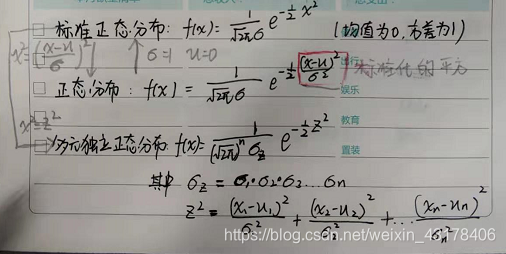 标准正态分布: f(x) = 1/(√2π σ) e^(-1/2 x²) (均值为0,方差为1)
x² = ((x-u)/σ)² σ=1 u=0
正态分布: f(x) = 1/(√2π σ) e^(-1/2 (x-u)²/σ²) 标准化的平方
娱乐
x²=z²
教育
多元独立正态分布 f(x)= 1/((√2π)ⁿ σz) e^(-1/2 z²)
置装
其中 σz = σ₁·σ₂·σ₃...σn
z² = (x₁-u₁)²/σ² + (x₂-u₂)²/σ₂² + ... (xn-un)²/σn²
https://blog.csdn.net/weixin_45178406